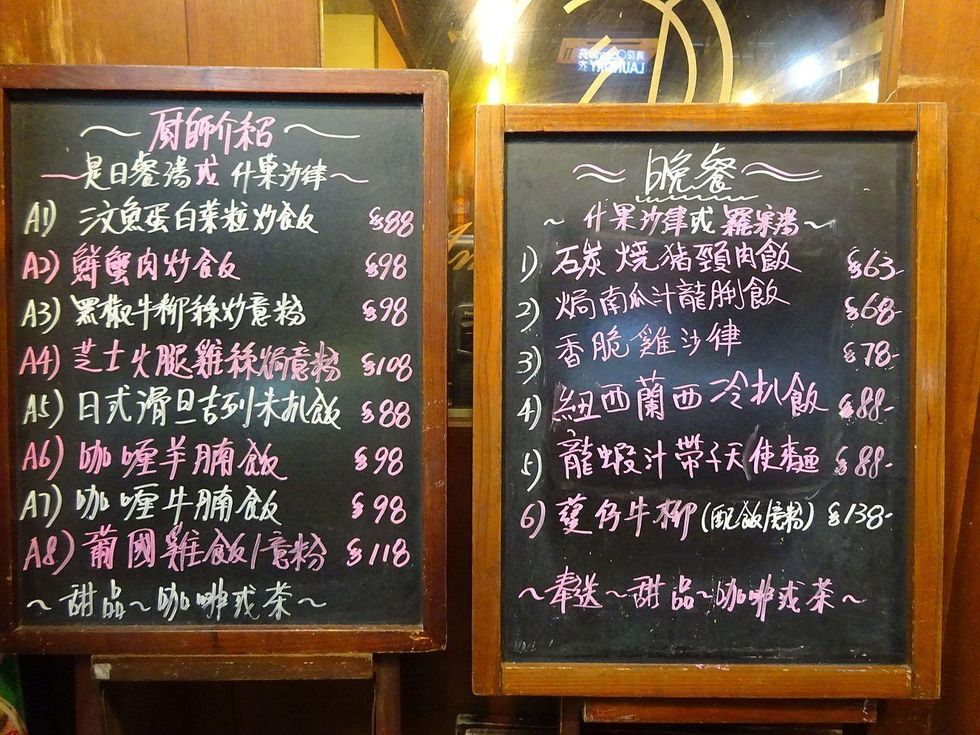 廚師介紹
是日餐湯或 什果沙律
A1) 三文魚蛋白菜粒炒飯 $88
A2) 鮮蟹肉炒飯 $98
A3) 黑椒牛柳絲炒意粉 $98
A4) 芝士火腿雞絲焗意粉 $108
A5) 日式滑旦吉列朱扒飯 $88
A6) 咖喱羊腩飯 $98
A7) 咖喱牛腩飯 $98
A8) 葡國雞飯/意粉 $118
~甜品~咖啡或茶~
晚餐
~什果沙律或羅宋湯~
1) 石炭燒猪頸肉飯 $63-
2) 焗南瓜汁龍脷飯 $68-
3) 香脆雞沙律 $78-
4) 紐西蘭西冷扒飯 $88-
5) 龍蝦汁帶子天使麵 $88-
6) 牛柳(配飯/意粉) $138-
~奉送~甜品~咖啡或茶~
LAUNDRY